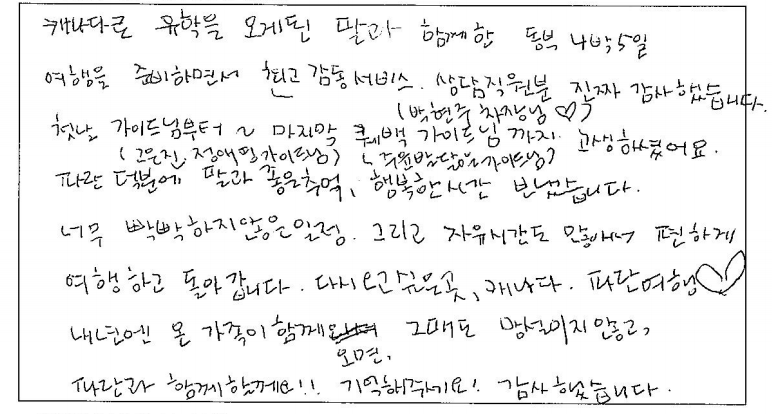 캐나다로 유학을 오게된 딸과 함께한 동부 4박5일
여행을 준비하면서 최고 감동서비스. 상담직원분 진짜 감사했습니다.
(박현주 차장님 ♡)
첫날 가이드님부터 ~ 마지막 퀘백 가이드님 까지 고생하셨어요.
(고운진, 정애필가이드님) ( 가이드님)
파란 덕분에 딸과 좋은추억, 행복한시간 보냈습니다.
너무 빡빡하지않은일정. 그리고 자유시간도 많아서 편하게
여행하고 돌아갑니다. 다시오고싶은곳, 캐나다. 파란여행♡
내년엔 온 가족이함께 그때도 망설이지 않고,
오면,
파란과 함께할께요!! 기억해주세요! 감사했습니다.